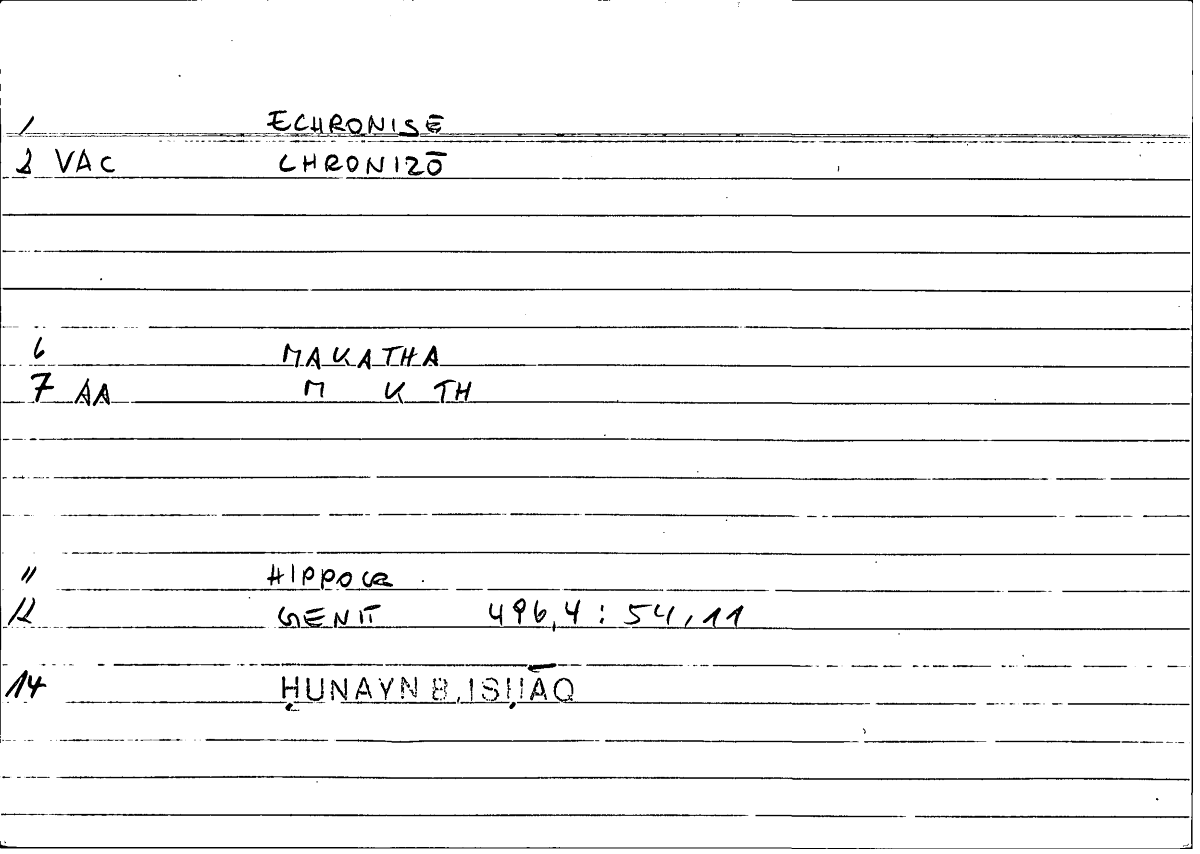 1 ECHRONISE
2 VAC CHRONIZŌ
6 MAKATHA
7 AA M K TH
11 HIPPOCR
12 GENIT 496,4 : 54,11
14 ḤUNAYN B. ISḤĀQ